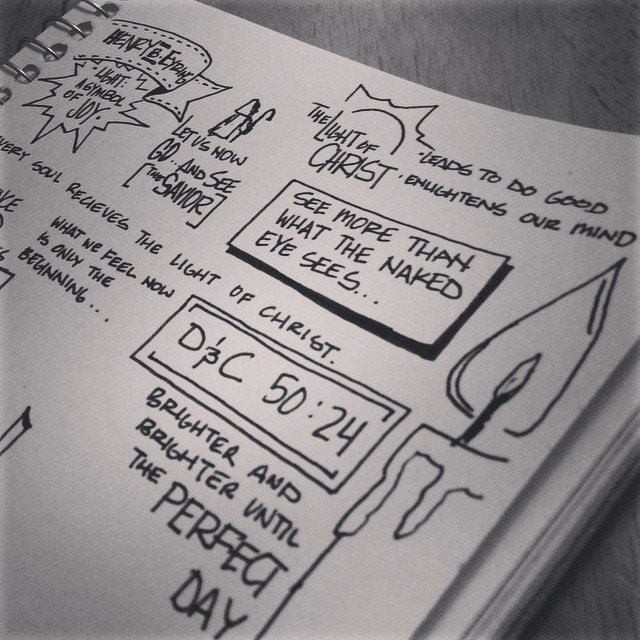 LIGHT
A SYMBOL
OF
JOY
AS
LET US NOW
GO AND SEE
[THE SAVIOR]
THE
LIGHT OF
CHRIST. LEADS TO DO GOOD
ENLIGHTENS OUR MIND
SEE MORE THAN
WHAT THE NAKED
EYE SEES...
VERY SOUL RECIEVES THE LIGHT OF CHRIST.
WHAT WE FEEL NOW
IS ONLY THE
BEGINNING...
D&C 50:24
BRIGHTER AND
BRIGHTER UNTIL
THE PERFECT
DAY